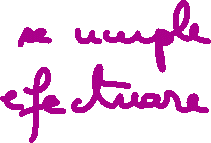 se umple
efectuare